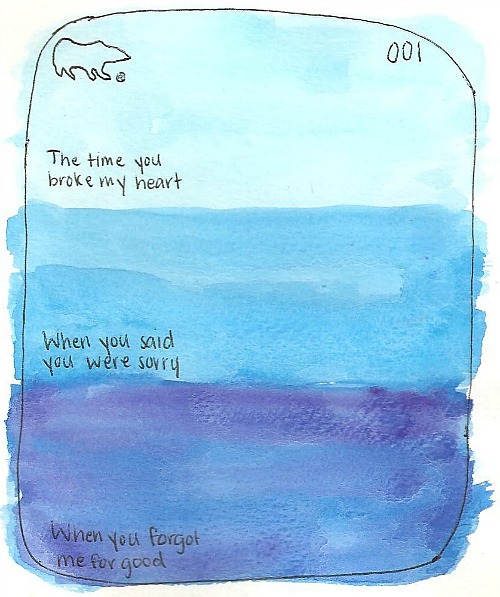 001
The time you
broke my heart
When you said
you were sorry
When you forgot
me for good